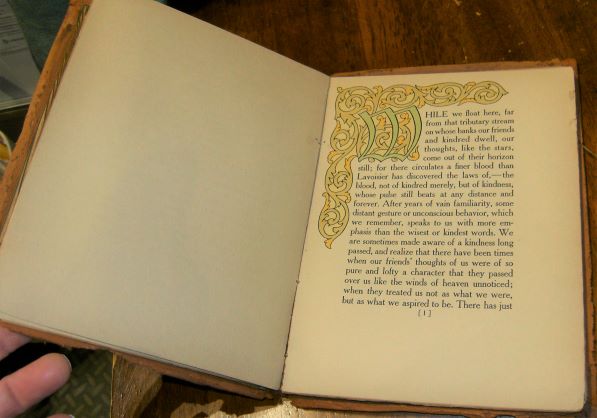 WHILE we float here, far
from that tributary stream
on whose banks our friends
and kindred dwell, our
thoughts, like the stars,
come out of their horizon
still; for there circulates a finer blood than
Lavoisier has discovered the laws of,—the
blood, not of kindred merely, but of kindness,
whose pulse still beats at any distance and
forever. After years of vain familiarity, some
distant gesture or unconscious behavior, which
we remember, speaks to us with more em-
phasis than the wisest or kindest words. We
are sometimes made aware of a kindness long
passed, and realize that there have been times
when our friends' thoughts of us were of so
pure and lofty a character that they passed
over us like the winds of heaven unnoticed;
when they treated us not as what we were,
but as what we aspired to be. There has just
[1]